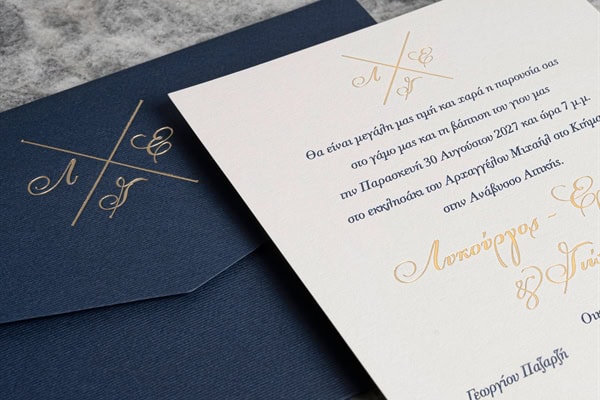 Λ Ε Γ
Λ Ε Γ
Θα είναι μεγάλη μας τιμή και χαρά η παρουσία σας
στο γάμο μας και τη βάπτιση του γιου μας
την Παρασκευή 30 Αυγούστου 2027 και ώρα 7 μ.μ.
στο εκκλησάκι του Αρχαγγέλου Μιχαήλ στο Κτήμα
στην Ανάβυσσο Αττικής.
Λυκούργος -
&
Γεωργίου Παζαρζή